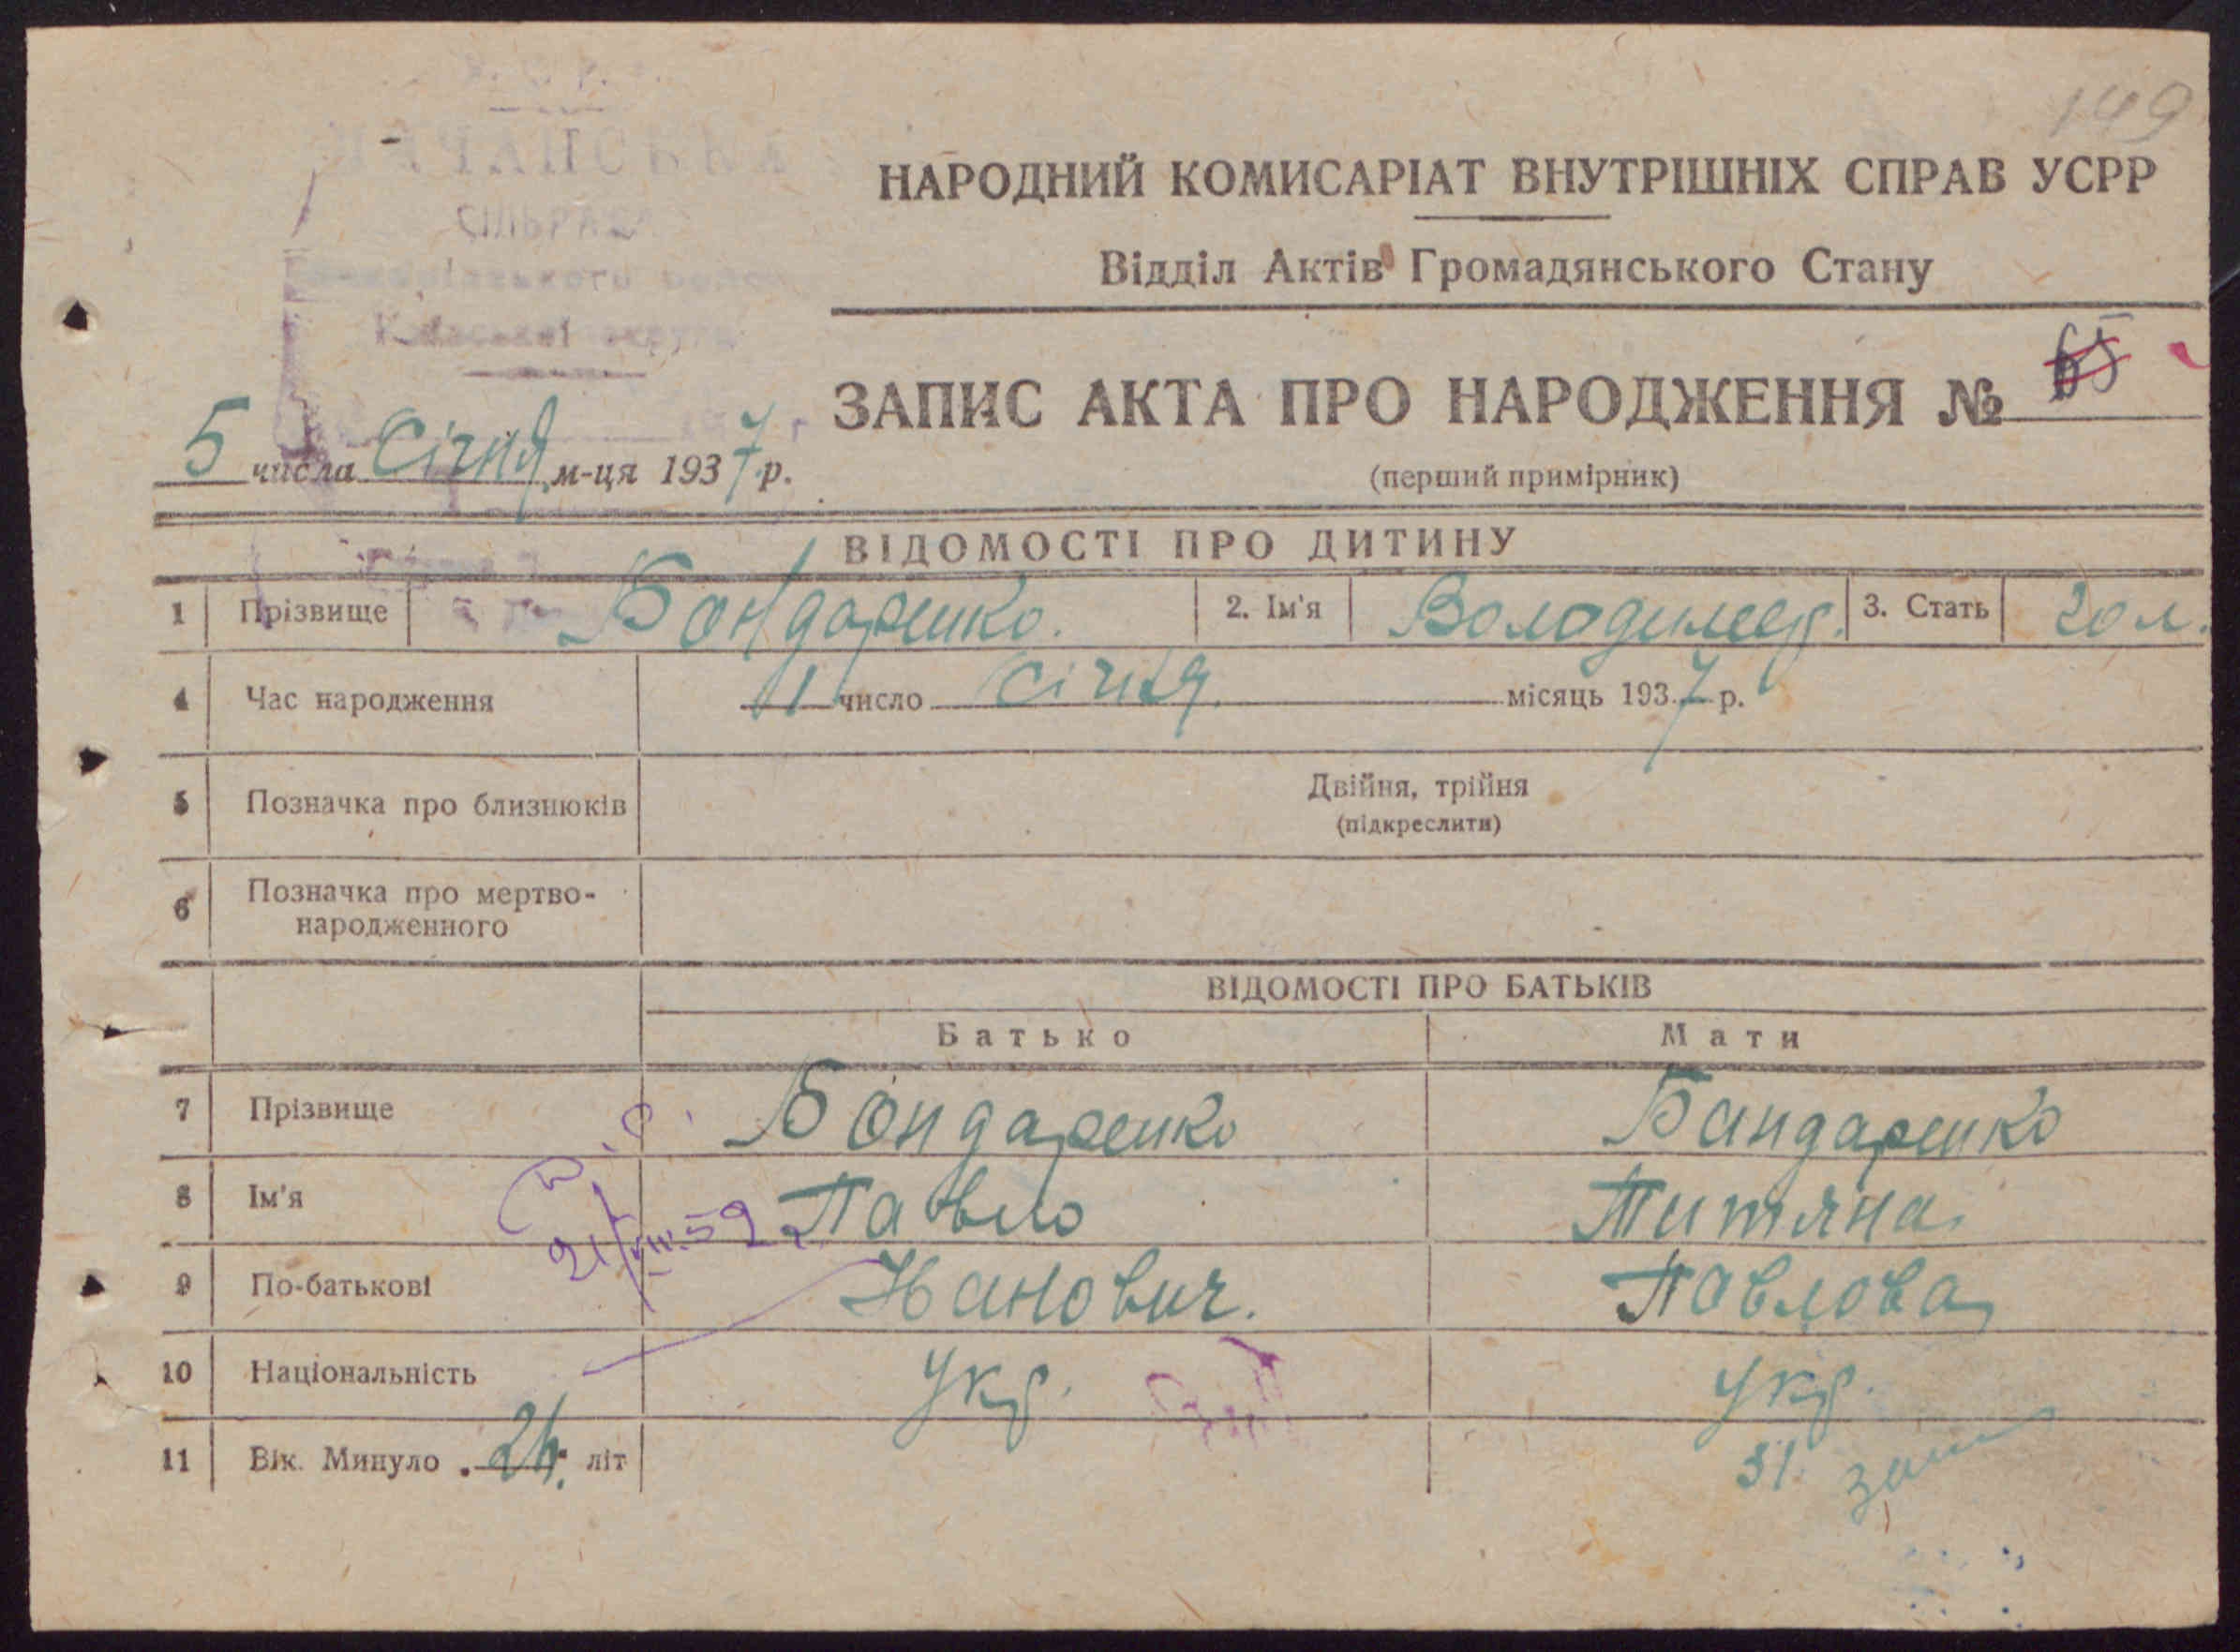 149
НАРОДНИЙ КОМИСАРІАТ ВНУТРІШНІХ СПРАВ УСРР
СІЛЬРАДА
Відділ Актів Громадянського Стану
ЗАПИС АКТА ПРО НАРОДЖЕННЯ № 65
5 числа Січня м-ця 1937 р.
(перший примірник)
ВІДОМОСТІ ПРО ДИТИНУ
1 Прізвище Бондаренко. 2. Ім'я Володимер. 3. Стать Чол.
4 Час народження 1 число Січня. місяць 1937 р.
5 Позначка про близнюків Двійня, трійня
(підкреслити)
6 Позначка про мертво-
народженного
ВІДОМОСТІ ПРО БАТЬКІВ
Батько Мати
7 Прізвище Бондаренко Бандаренко
8 Ім'я Павло Титяна
21/VIII.59
9 По-батькові Іванович. Павлова
10 Національність Укр. Укр.
11 Вік. Минуло 24. літ 31.